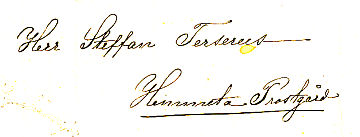 Herr Steffan Terserus
Himmeta Prostgård